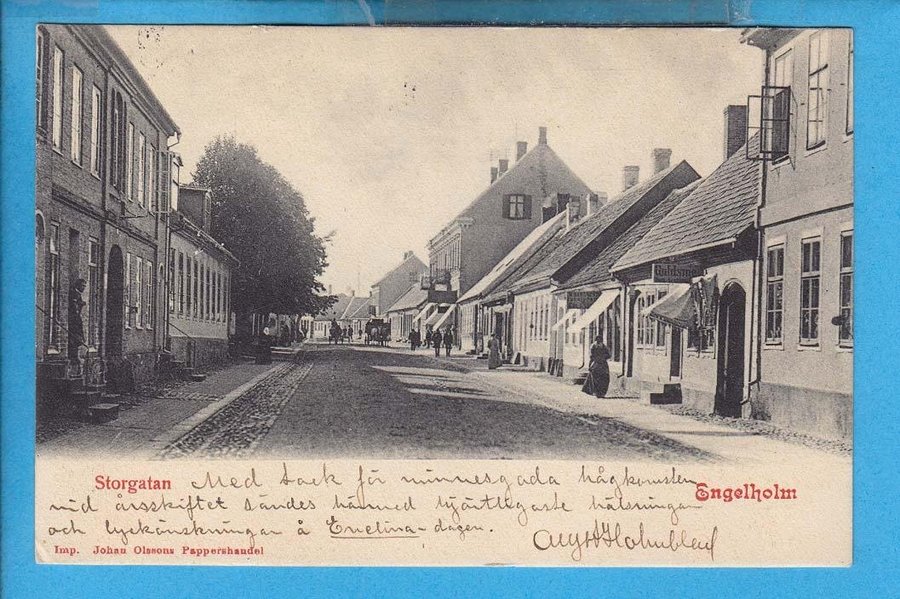 Guldsmed
Storgatan Med tack för minnesgoda hågkomsten Engelholm
vid årsskiftet sändes härmed hjärtligaste hälsningar
och lyckönskningar å Evelina-dagen.
Imp. Johan Olssons Pappershandel